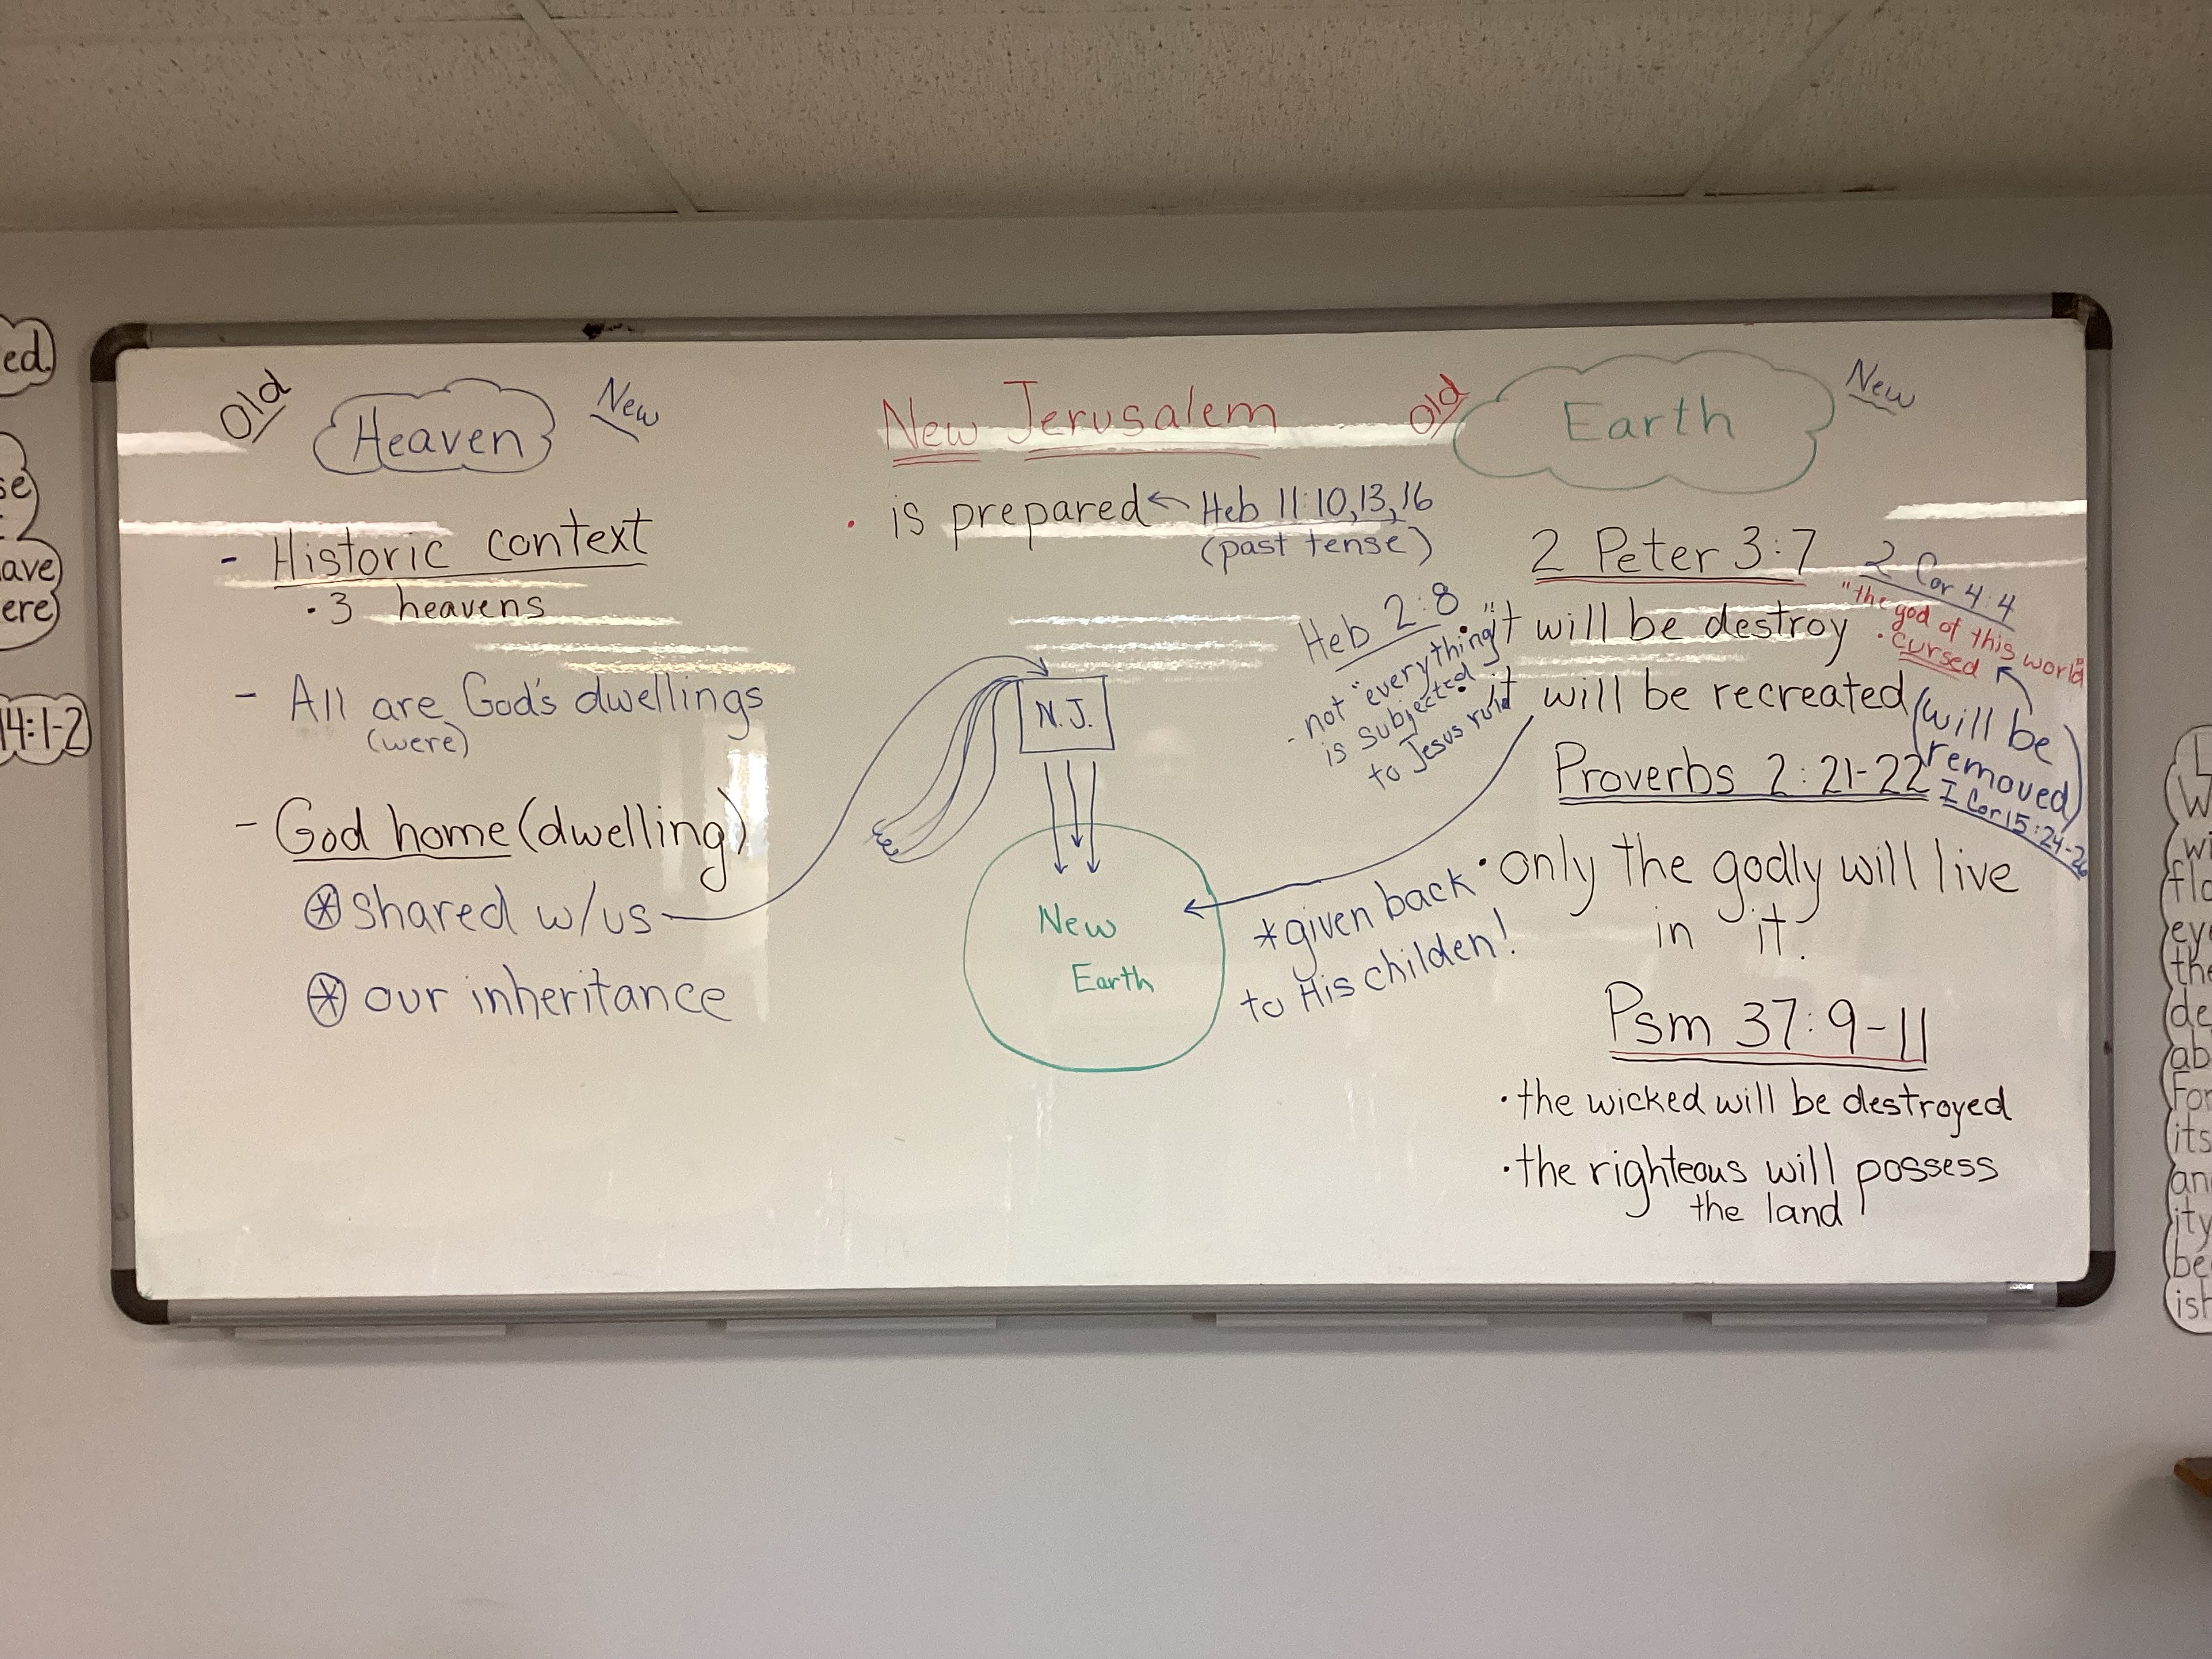 Old
Heaven
New
- Historic context
• 3 heavens
- All are God's dwellings
(were)
- God home (dwelling)
* shared w/us
* our inheritance
New Jerusalem
• is prepared ← Heb 11:10,13,16
(past tense)
N.J.
New
Earth
Heb 2:8
- not "everything"
is subjected
to Jesus rule
* given back
to His childen!
Old
Earth
New
2 Peter 3:7
• it will be destroy
• it will be recreated
2 Cor 4:4
"the god of this world"
• cursed
(will be
removed)
I Cor 15:24-26
Proverbs 2:21-22
• only the godly will live
in it.
Psm 37:9-11
• the wicked will be destroyed
• the righteous will possess
the land
ed.
se
ave
ere)
14:1-2
L
W
wi
flo
eve
the
de
ab
For
its
an
ity
be
ish